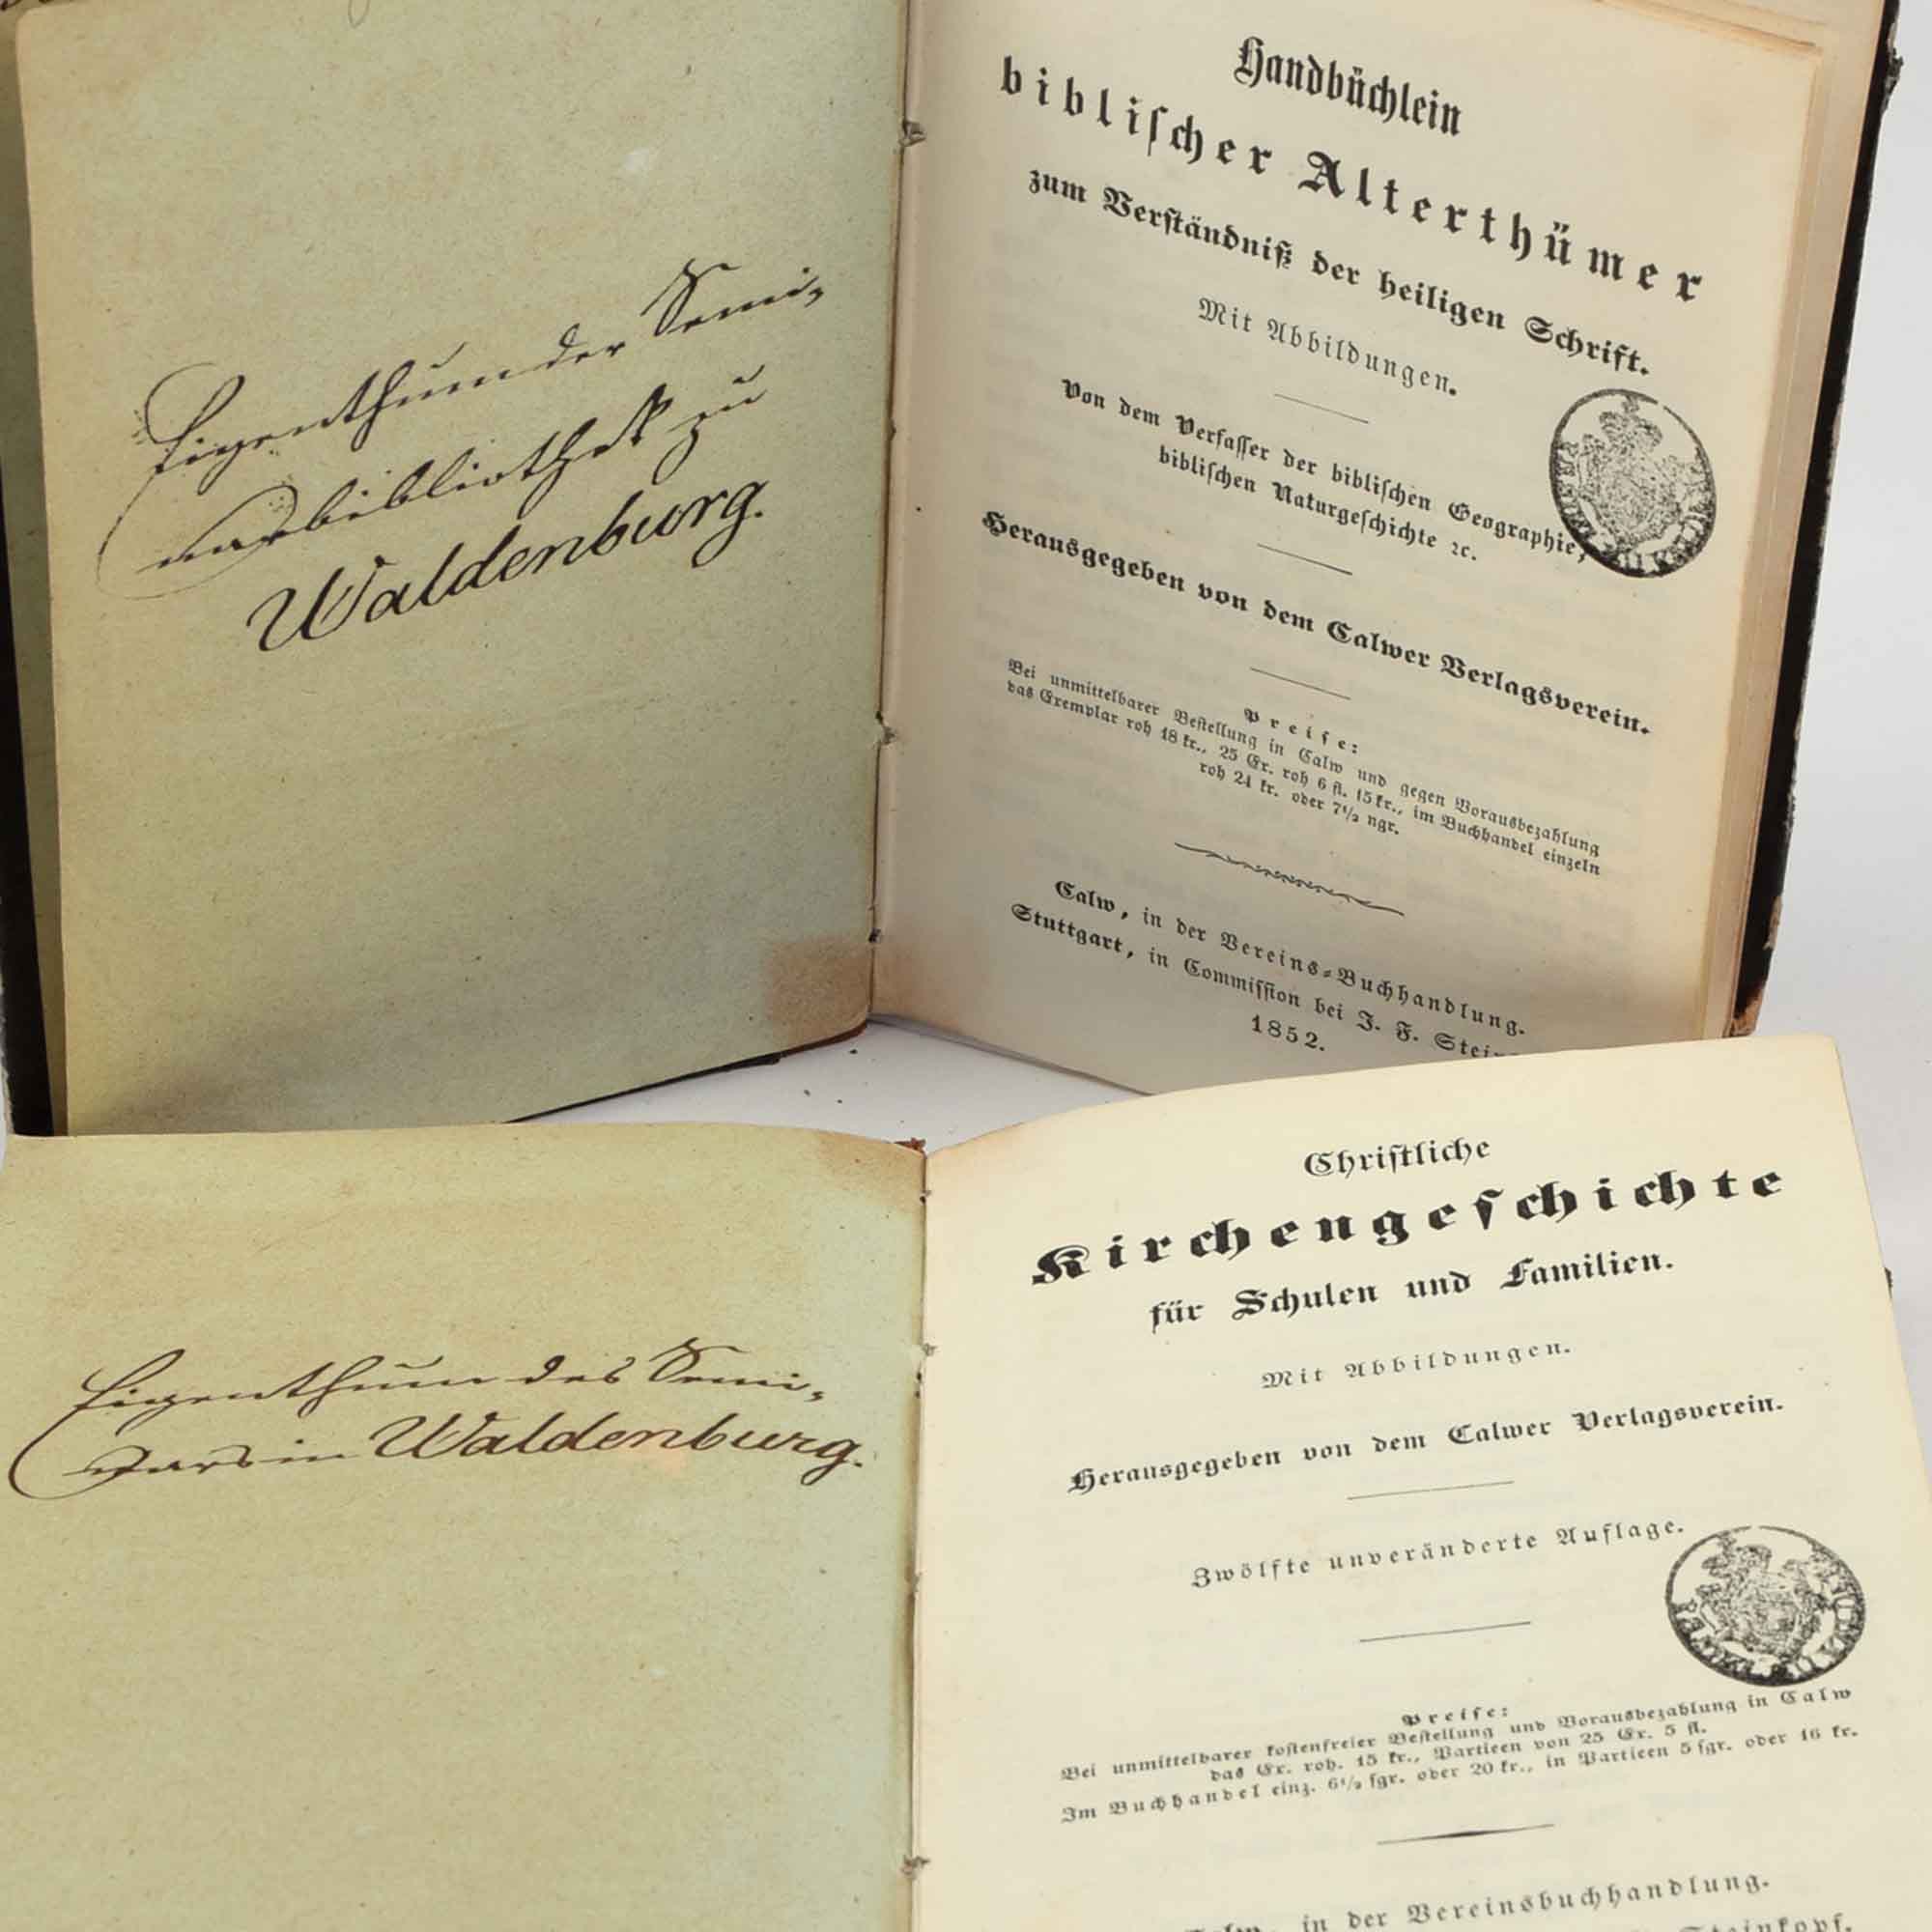 Eigenthum der Semi-
narbibliothek zu
Waldenburg.
Handbüchlein
biblischer Alterthümer
zum Verständniß der heiligen Schrift.
Mit Abbildungen.
Von dem Verfasser der biblischen Geographie,
biblischen Naturgeschichte ꝛc.
Herausgegeben von dem Calwer Verlagsverein.
Preise:
Bei unmittelbarer Bestellung in Calw und gegen Vorausbezahlung
das Exemplar roh 18 kr., 25 Ex. roh 6 fl. 15 kr., im Buchhandel einzeln
roh 24 kr. oder 7½ ngr.
Calw, in der Vereins-Buchhandlung.
Stuttgart, in Commission bei J. F. Stein
1852.
Eigenthum des Semi-
nars in Waldenburg.
Christliche
Kirchengeschichte
für Schulen und Familien.
Mit Abbildungen.
Herausgegeben von dem Calwer Verlagsverein.
Zwölfte unveränderte Auflage.
Preise:
Bei unmittelbarer kostenfreier Bestellung und Vorausbezahlung in Calw
das Ex. roh. 15 kr., Partieen von 25 Ex. 5 fl.
Im Buchhandel einz. 6½ sgr. oder 20 kr., in Partieen 5 sgr. oder 16 kr.
in der Vereinsbuchhandlung.
Steinkopf.